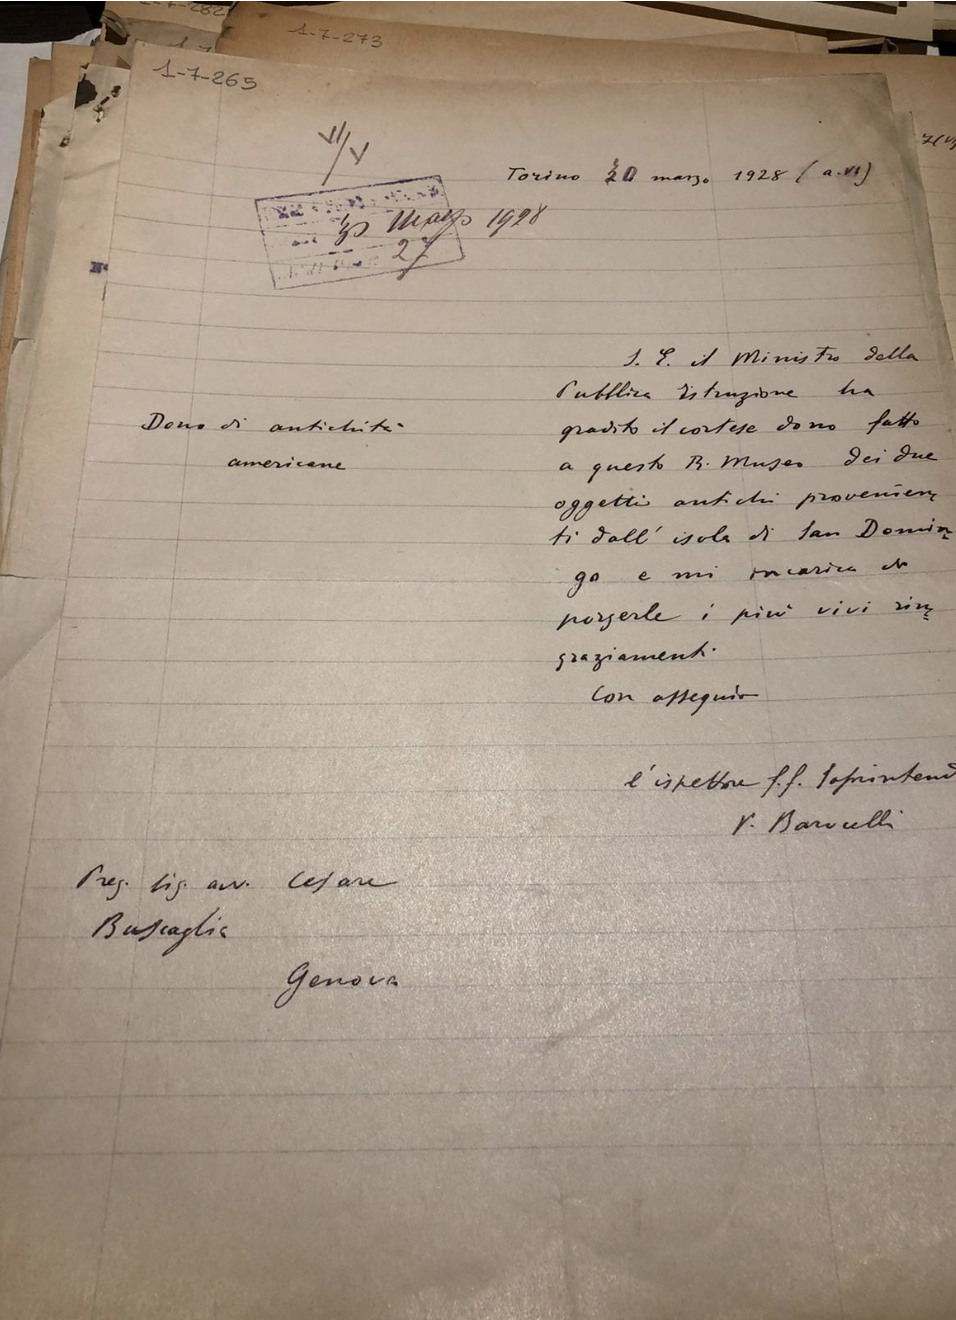 1-7-282
1-7-273
1-7-265
VI/V
Torino 30 marzo 1928 (a. VI)
30 Marzo 1928
27
S. E. il Ministro della
Pubblica Istruzione ha
Dono di antichità
gradito il cortese dono fatto
americane
a questo R. Museo dei due
oggetti antichi provenien
ti dall' isola di San Domin
go e mi incarica di
porgerle i più vivi rin
graziamenti
Con ossequio
l'ispettore f.f. Soprintend
P. Barocelli
Preg. Sig. avv. Cesare
Buscaglia
Genova